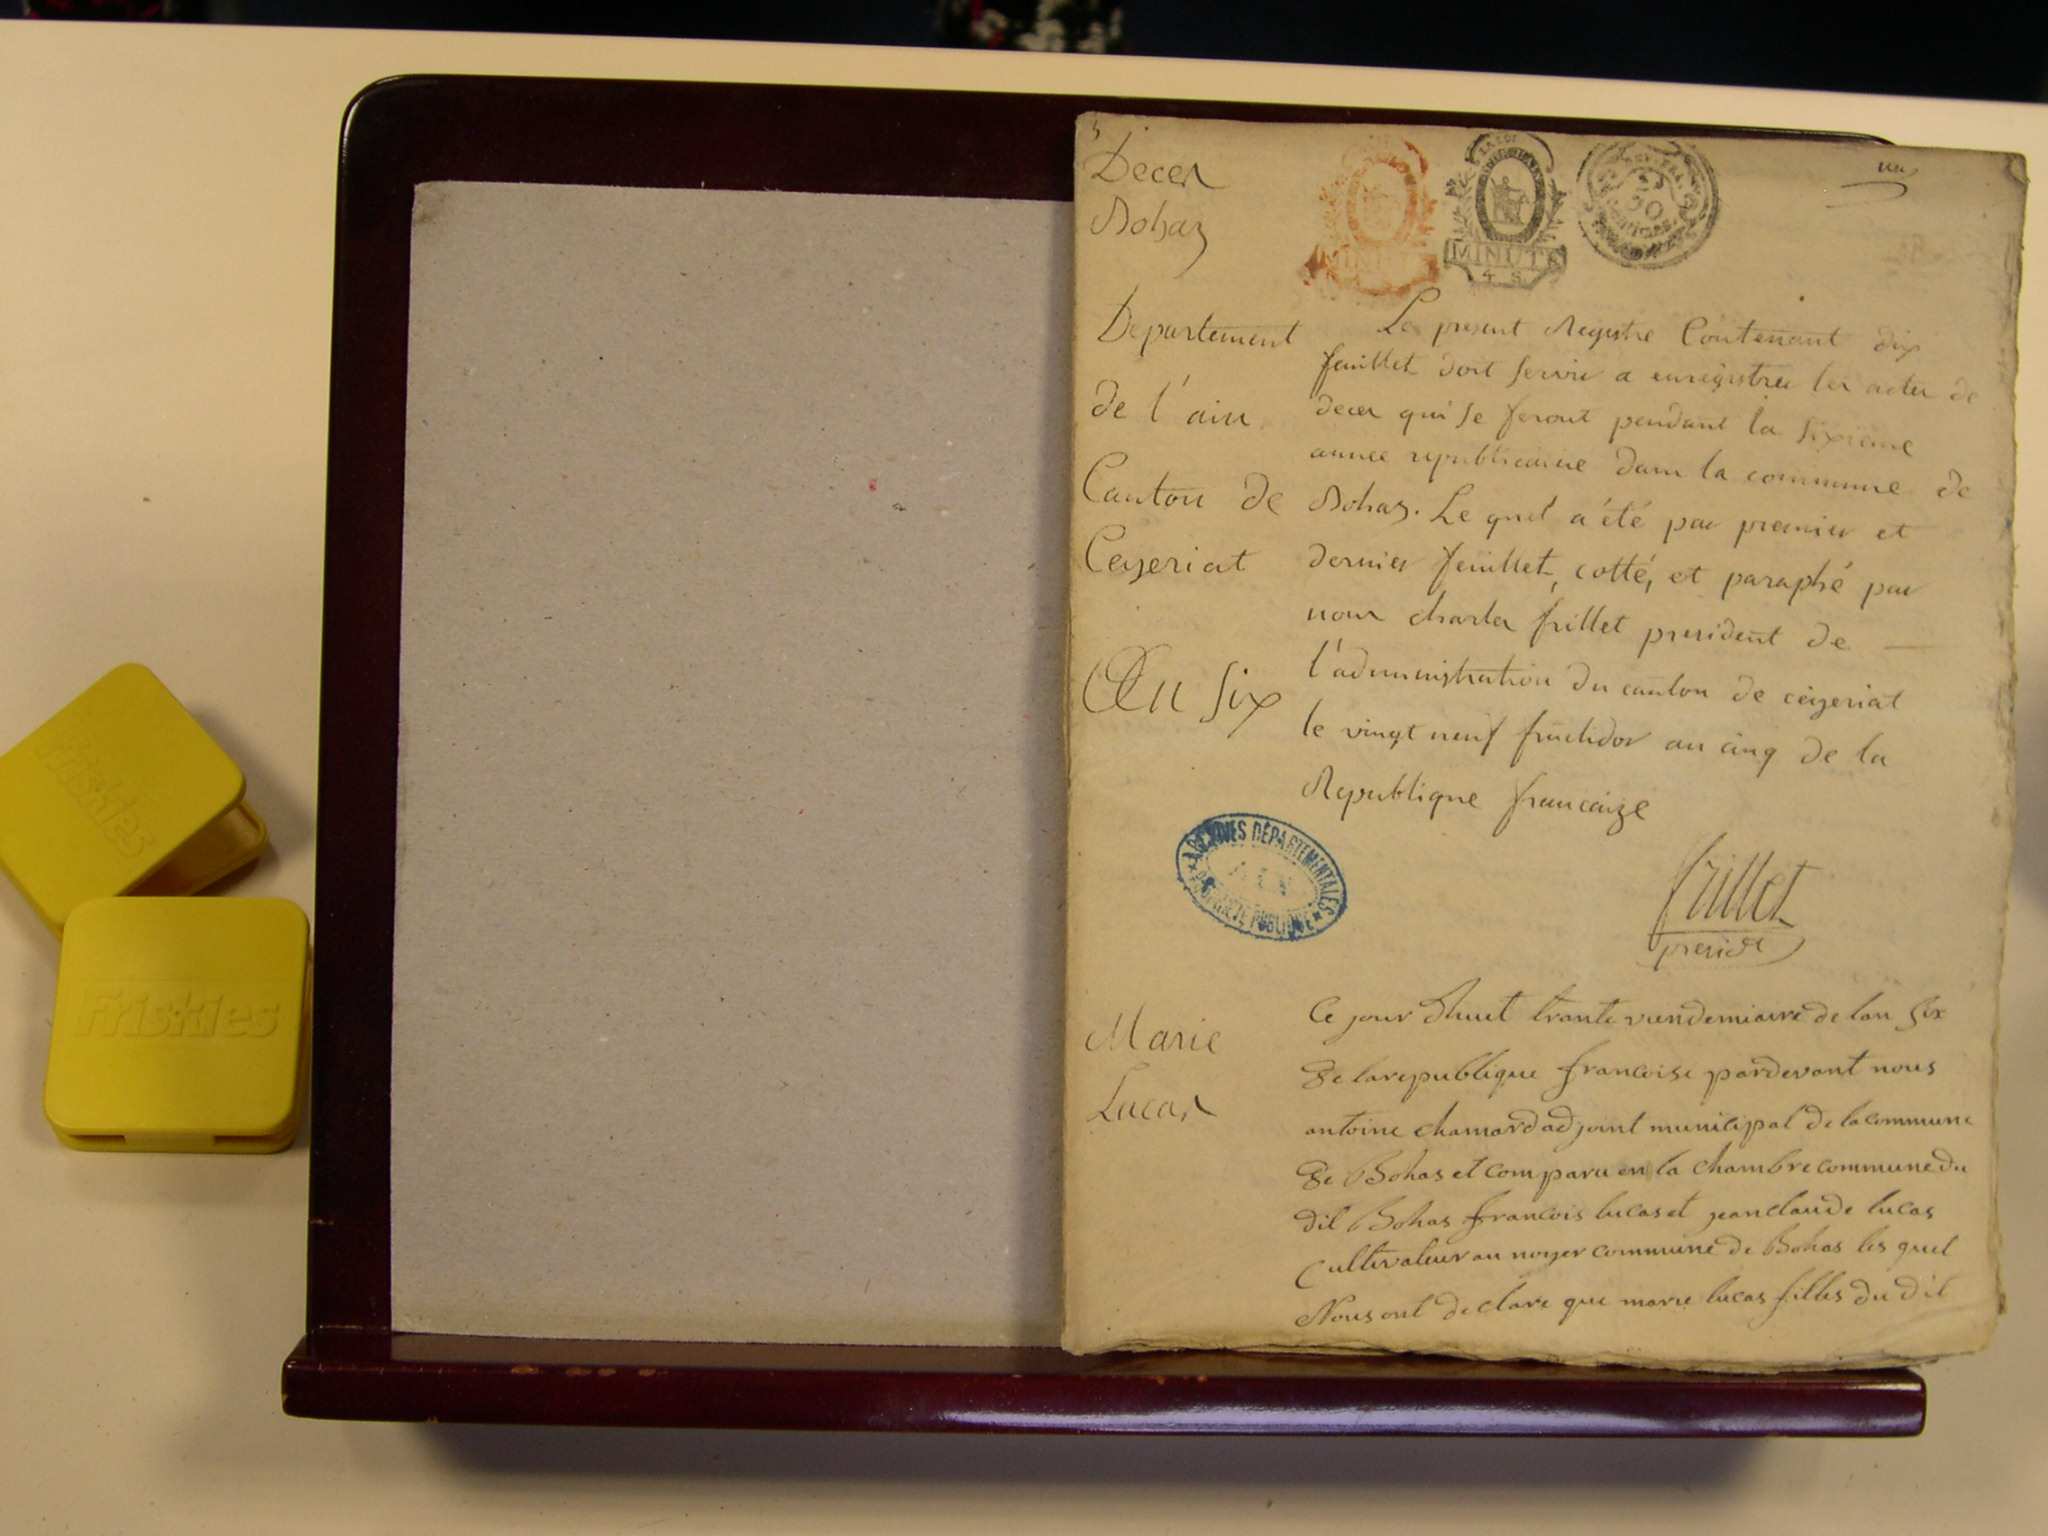 Friskies
Friskies
Deces
Bohaz
un
MINUTE
MINUTE
4 S.
Departement
de l'ain
Canton de
Ceyzeriat
An six
Le present Registre Contenant dix
feuillet doit servir a enregistrer les actes de
deces qui se feront pendant la sixieme
annee republicaine dans la commune de
Bohaz. Le quel a été par premier et
dernier feuillet, cotté, et paraphé par
nous charles frillet president de
l'administration du canton de ceyzeriat
le vingt neuf fructidor an cinq de la
Republique francaize
ARCHIVES DÉPARTEMENTALES
AIN
PROPRIÉTÉ PUBLIQUE
frillet
presidt
Marie
Lucas
Ce jour dhuit trante vendemiaire de lan six
de la republique francoise pardevant nous
antoine chamard adjoint municipal de la commune
de Bohas et comparu en la chambre commune du
dit Bohas francois lucas et jean claude lucas
Cultivateur au noyer commune de Bohas les quel
Nous ont declare que marie lucas filles du dit